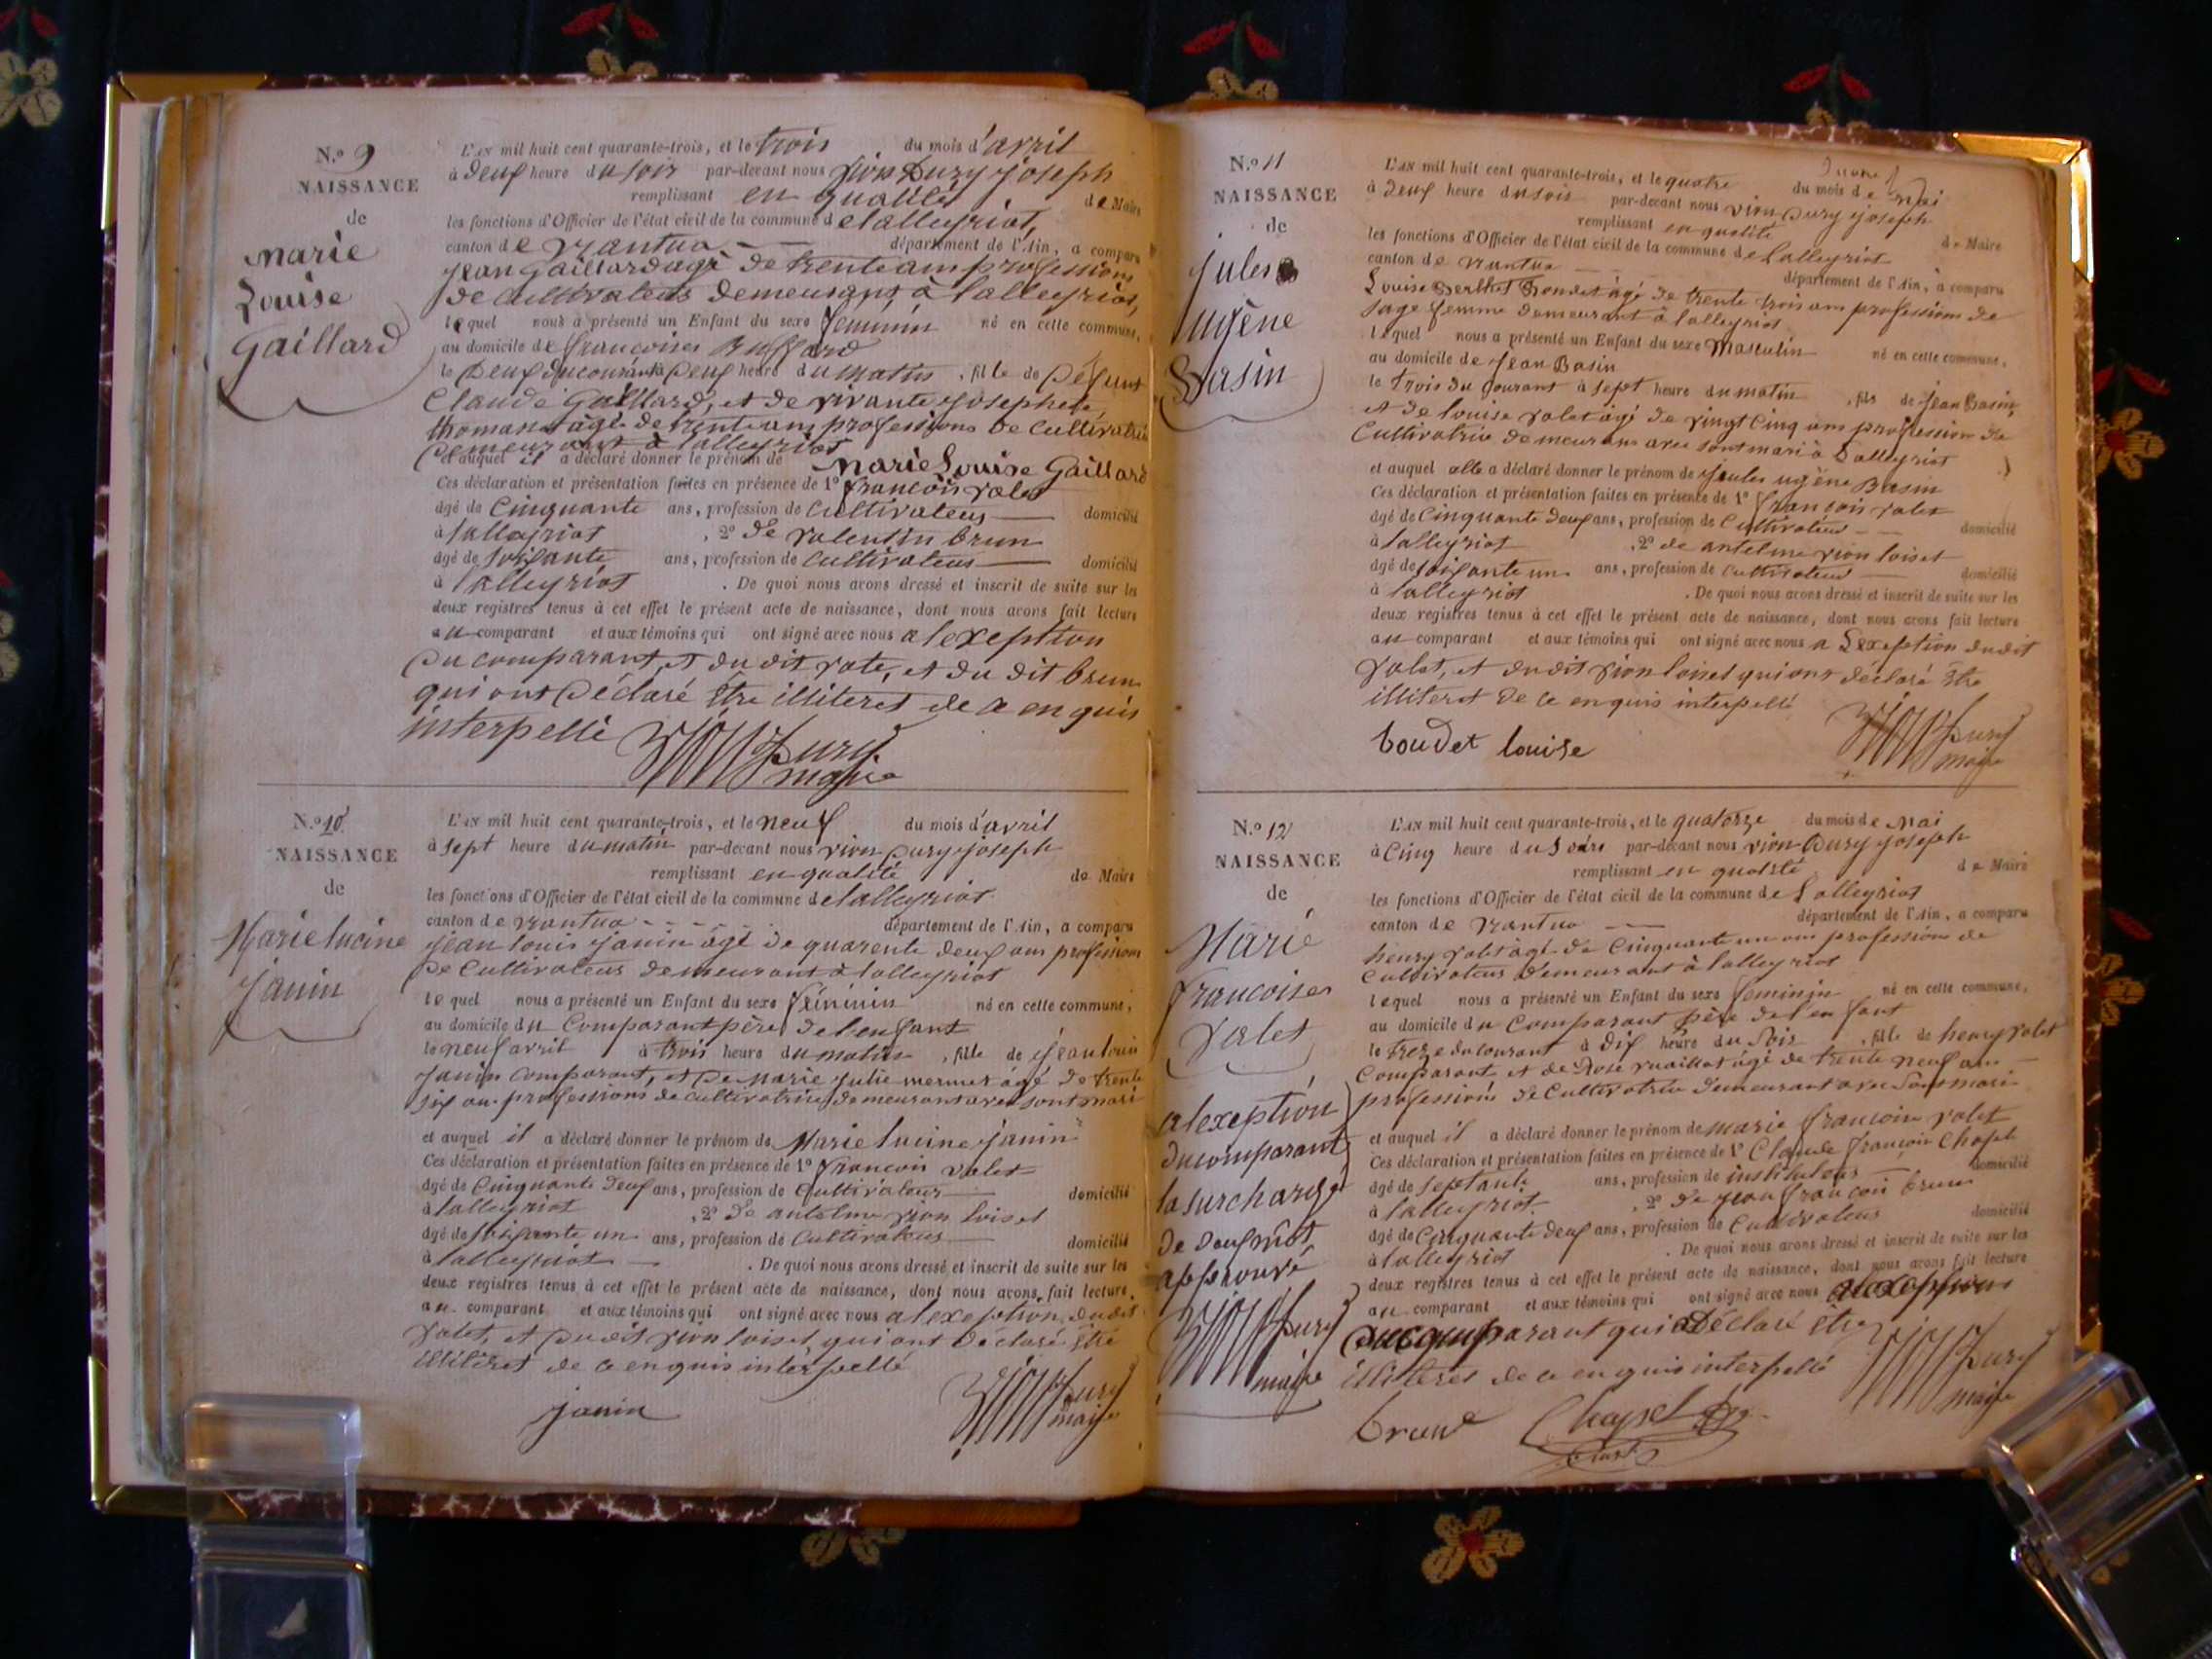 N.º 9
NAISSANCE
de
Marie
Louise
Gaillard
L'AN mil huit cent quarante-trois, et le trois du mois d'avril
à deux heure du soir par-devant nous Vion Dury joseph
remplissant en qualité de Maire
les fonctions d'Officier de l'état civil de la commune de lalleyriat,
canton de nantua département de l'Ain, a comparu
jean Gaillard agé de trente ans professions
de Cultivateur demeurant à lalleyriat,
lequel nous a présenté un Enfant du sexe féminin né en cette commune,
au domicile de francoises Buffard
le Deux du courant à Deux heure du matin, fille de Défunt
Claude Gaillard, et de vivante josephete
thomasset agée de trente ans professions de Cultivatrice
Demeurant à lalleyriat
et auquel il a déclaré donner le prénom de Marie Louise Gaillard
Ces déclaration et présentation faites en présence de 1º francois valet
âgé de Cinquante ans, profession de Cultivateur domicilié
à lalleyriat , 2º de valentin brun
âgé de soixante ans, profession de Cultivateur domicilié
à lalleyriat . De quoi nous avons dressé et inscrit de suite sur les
deux registres tenus à cet effet le présent acte de naissance, dont nous avons fait lecture
au comparant et aux témoins qui ont signé avec nous a lexeption
Du comparant, et du dit valet, et du dit brun
qui ont Déclaré être illiteret de ce en quis
interpellé Vion Dury
maire
N.º 10
NAISSANCE
de
Marie lucine
janin
L'AN mil huit cent quarante-trois, et le neuf du mois d'avril
à sept heure du matin par-devant nous vion Dury joseph
remplissant en qualité de Maire
les fonctions d'Officier de l'état civil de la commune de lalleyriat
canton de nantua département de l'Ain, a comparu
jean louis janin âgé de quarente deux ans professions
De Cultivateur demeurant à lalleyriat
lequel nous a présenté un Enfant du sexe féminin né en cette commune,
au domicile du Comparant père de l'enfant
le neuf avril à trois heure du matin , fille de jean louis
janin comparant, et De marie julie mermet agé de trente
six ans professions de cultivatrice demeurant avec sont mari
et auquel il a déclaré donner le prénom de Marie lucine janin
Ces déclaration et présentation faites en présence de 1º francois valet
âgé de Cinquante deux ans, profession de Cultivateur domicilié
à lalleyriat , 2º de antelme vion loiset
âgé de soixante un ans, profession de Cultivateur domicilié
à lalleyriat . De quoi nous avons dressé et inscrit de suite sur les
deux registres tenus à cet effet le présent acte de naissance, dont nous avons fait lecture
au comparant et aux témoins qui ont signé avec nous a lexeption du dit
valet, et Du dit vion loiset, qui ont Déclaré être
illiteret de ce en quis interpellé
janin Vion Dury
maire
N.º 11
NAISSANCE
de
jules
ugène
Basin
L'AN mil huit cent quarante-trois, et le quatre du mois de mai
à deux heure du soir par-devant nous vion Dury joseph
remplissant en qualité de Maire
les fonctions d'Officier de l'état civil de la commune de Lalleyriat
canton de nantua département de l'Ain, a comparu
Louise Berthet Bondet âgé de trente trois ans profession de
sage femme demeurant à lalleyriat
lequel nous a présenté un Enfant du sexe masculin né en cette commune,
au domicile de jean Basin
le trois du courant à sept heure du matin , fils de jean Basin,
et de louise valet âgé de vingt cinq ans profession de
Cultivatrice demeurant avec sont mari à Lalleyriat
et auquel elle a déclaré donner le prénom de jules ugène Basin
Ces déclaration et présentation faites en présence de 1º francois valet
âgé de Cinquante deux ans, profession de Cultivateur domicilié
à lalleyriat , 2º de antelme vion loiset
âgé de soixante un ans, profession de Cultivateur domicilié
à lalleyriat . De quoi nous avons dressé et inscrit de suite sur les
deux registres tenus à cet effet le présent acte de naissance, dont nous avons fait lecture
au comparant et aux témoins qui ont signé avec nous a Lexeption du dit
valet, et du dit vion loiset qui ont déclaré être
illiteret de ce en quis interpellé
boudet louise Vion Dury
maire
N.º 12
NAISSANCE
de
Marie
francoises
Valet
a lexeption
du comparant
la surcharge
de deux mot
approuvé
Vion Dury
maire
L'AN mil huit cent quarante-trois, et le quatorze du mois de mai
à Cinq heure du soire par-devant nous vion Dury joseph
remplissant en qualité de Maire
les fonctions d'Officier de l'état civil de la commune de Lalleyriat
canton de nantua département de l'Ain, a comparu
henry valet âgé de Cinquante un ans profession de
Cultivateur demeurant à lalleyriat
lequel nous a présenté un Enfant du sexe feminin né en cette commune,
au domicile du Comparant père de l'enfant
le treze du courant à dix heure du soir , fille de henry valet
Comparant et de Rose ruaillat âgé de trente neuf ans
professions de Cultivatrice demeurant avec sont mari
et auquel il a déclaré donner le prénom de marie francoise valet
Ces déclaration et présentation faites en présence de 1º Claude françois Chapel
âgé de septante ans, profession de instituteur domicilié
à lalleyriat , 2º de jean francois brun
âgé de Cinquante deux ans, profession de Cultivateur domicilié
à lalleyriat . De quoi nous avons dressé et inscrit de suite sur les
deux registres tenus à cet effet le présent acte de naissance, dont nous avons fait lecture
au comparant et aux témoins qui ont signé avec nous a lexeption
du comparant qui a Déclaré être
illiteret de ce en quis interpellé Vion Dury
maire
brun Chapel